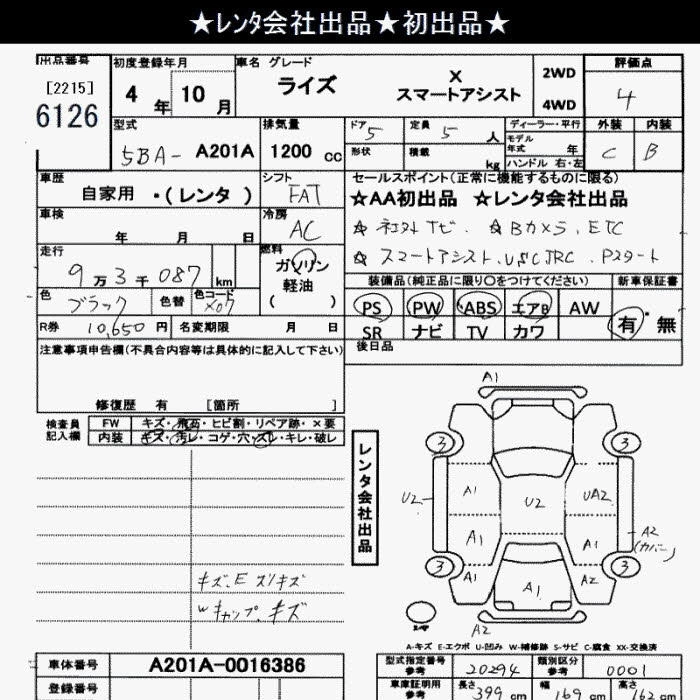 ★レンタ会社出品★初出品★
出品番号
[2215]
6126
初度登録年月
4 年 10 月
車名 グレード
ライズ X
スマートアシスト
2WD
4WD
評価点
4
型式
5BA- A201A
排気量
1200 cc
ドア 5
定員 5 人
形状
積載 kg
ディーラー・平行
モデル年式 年
ハンドル 右・左
外装 内装
C B
車歴
自家用 ・(レンタ )
シフト
FAT
セールスポイント(正常に機能するものに限る)
☆AA初出品 ☆レンタ会社出品
☆ Bカメラ、ETC
☆ スマートアシスト、USC,JRC、Pスタート
車検
年 月 日
冷房
AC
走行
9万3千087 km
燃料
ガソリン
軽油
( )
色
ブラック
色替
色コード
X07
R券 10,650 円
名変期限 月 日
装備品(純正品に限り○をつけてください)
新車保証書
PS PW ABS エアB AW
SR ナビ TV カワ
有・無
後日品
注意事項申告欄(不具合内容等は具体的に記入して下さい)
修復歴 有 [箇所 ]
検査員
記入欄
FW キズ・飛石・ヒビ割・リペア跡・×要
内装 キズ・汚レ・コゲ・穴・スレ・キレ・破レ
レンタ会社出品
A1
3 3
A1 U2 UA2
U2
A1 A1
A2
(カバー)
3 3
A1 A1 A2
A2
キズ、E ズリキズ
Wキャップ、キズ
A-キズ E-エクボ U-凹み W-補修跡 S-サビ C-腐食 XX-交換済
車体番号 A201A-0016386
登録番号
型式指定番号
参考
20294
類別区分
参考
0001
車庫証明用
参考
長さ 399 cm
幅 169 cm
高さ 162 cm